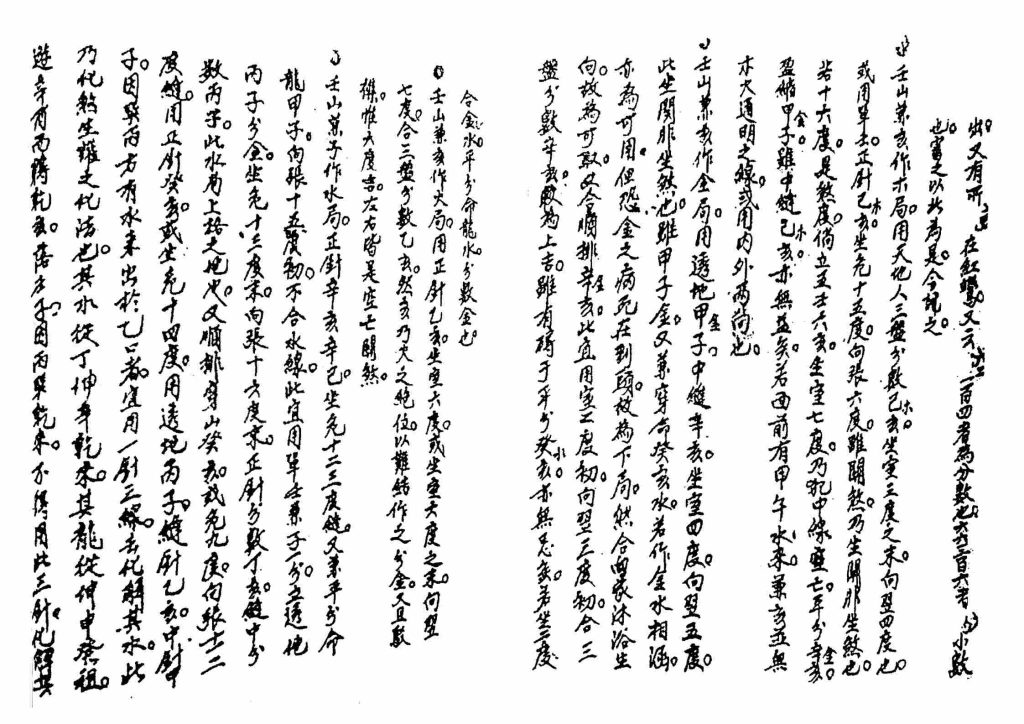 出又有所 在紅鸞又云 一百四者為分數也 六百六者 小數
也當之以此為是今說之
壬山兼亥作木局用天地人三盤分數己亥坐室三度之末向翌四度也
或用單壬正針己亥坐危十五度向張六度雖關煞乃生關非坐煞也
若十六度是煞度倘立五壬六亥坐室七度乃犯中線空亡平分辛亥
盈縮甲子雖中縫己亥亦無益矣若西前有甲午水來兼亥並無
木大通明之線或用內外兩向也
壬山兼亥作金局用透地甲子中縫辛亥坐室四度向翌五度
此坐關非坐煞也雖甲子金又兼穿命癸亥水若作金水相涵
亦為可用但恐金之病死在到頭故為下局然合向家沐浴生
向故為可取又合順排辛亥此宜用室二度初向翌三度初合三
盤分數辛亥為上吉雖有碍于平分癸亥亦無忌矣若坐二度
合金水平分命龍水分數金也
壬山兼亥作火局用正針乙亥坐室六度或坐室六度之末向翌
七度合三盤分數乙亥然亥乃火之絕位以難結作之分金又且駁
雜惟六度吉左右皆是空亡關煞
壬山兼子作水局正針辛亥辛巳坐危十二三度縫又兼平分命
龍甲子向張十五度初不合水線此宜用單壬兼子一分立透地
丙子分金坐危十三度末向張十六度末正針分數丁亥縫中分
數丙子此水局上格之地也又順排穿山癸亥或危九度向張十二
度縫用正針癸亥或坐危十四度用透地丙子縫針乙亥中針
子因與丙方有水來出於乙口者宜用一針三線去化解其水此
乃化煞生雖之化法也其水從丁坤辛乾來其龍從坤申癸祖
遊辛有而轉乾亥落壬子因丙與乾來不得用此三針化解其